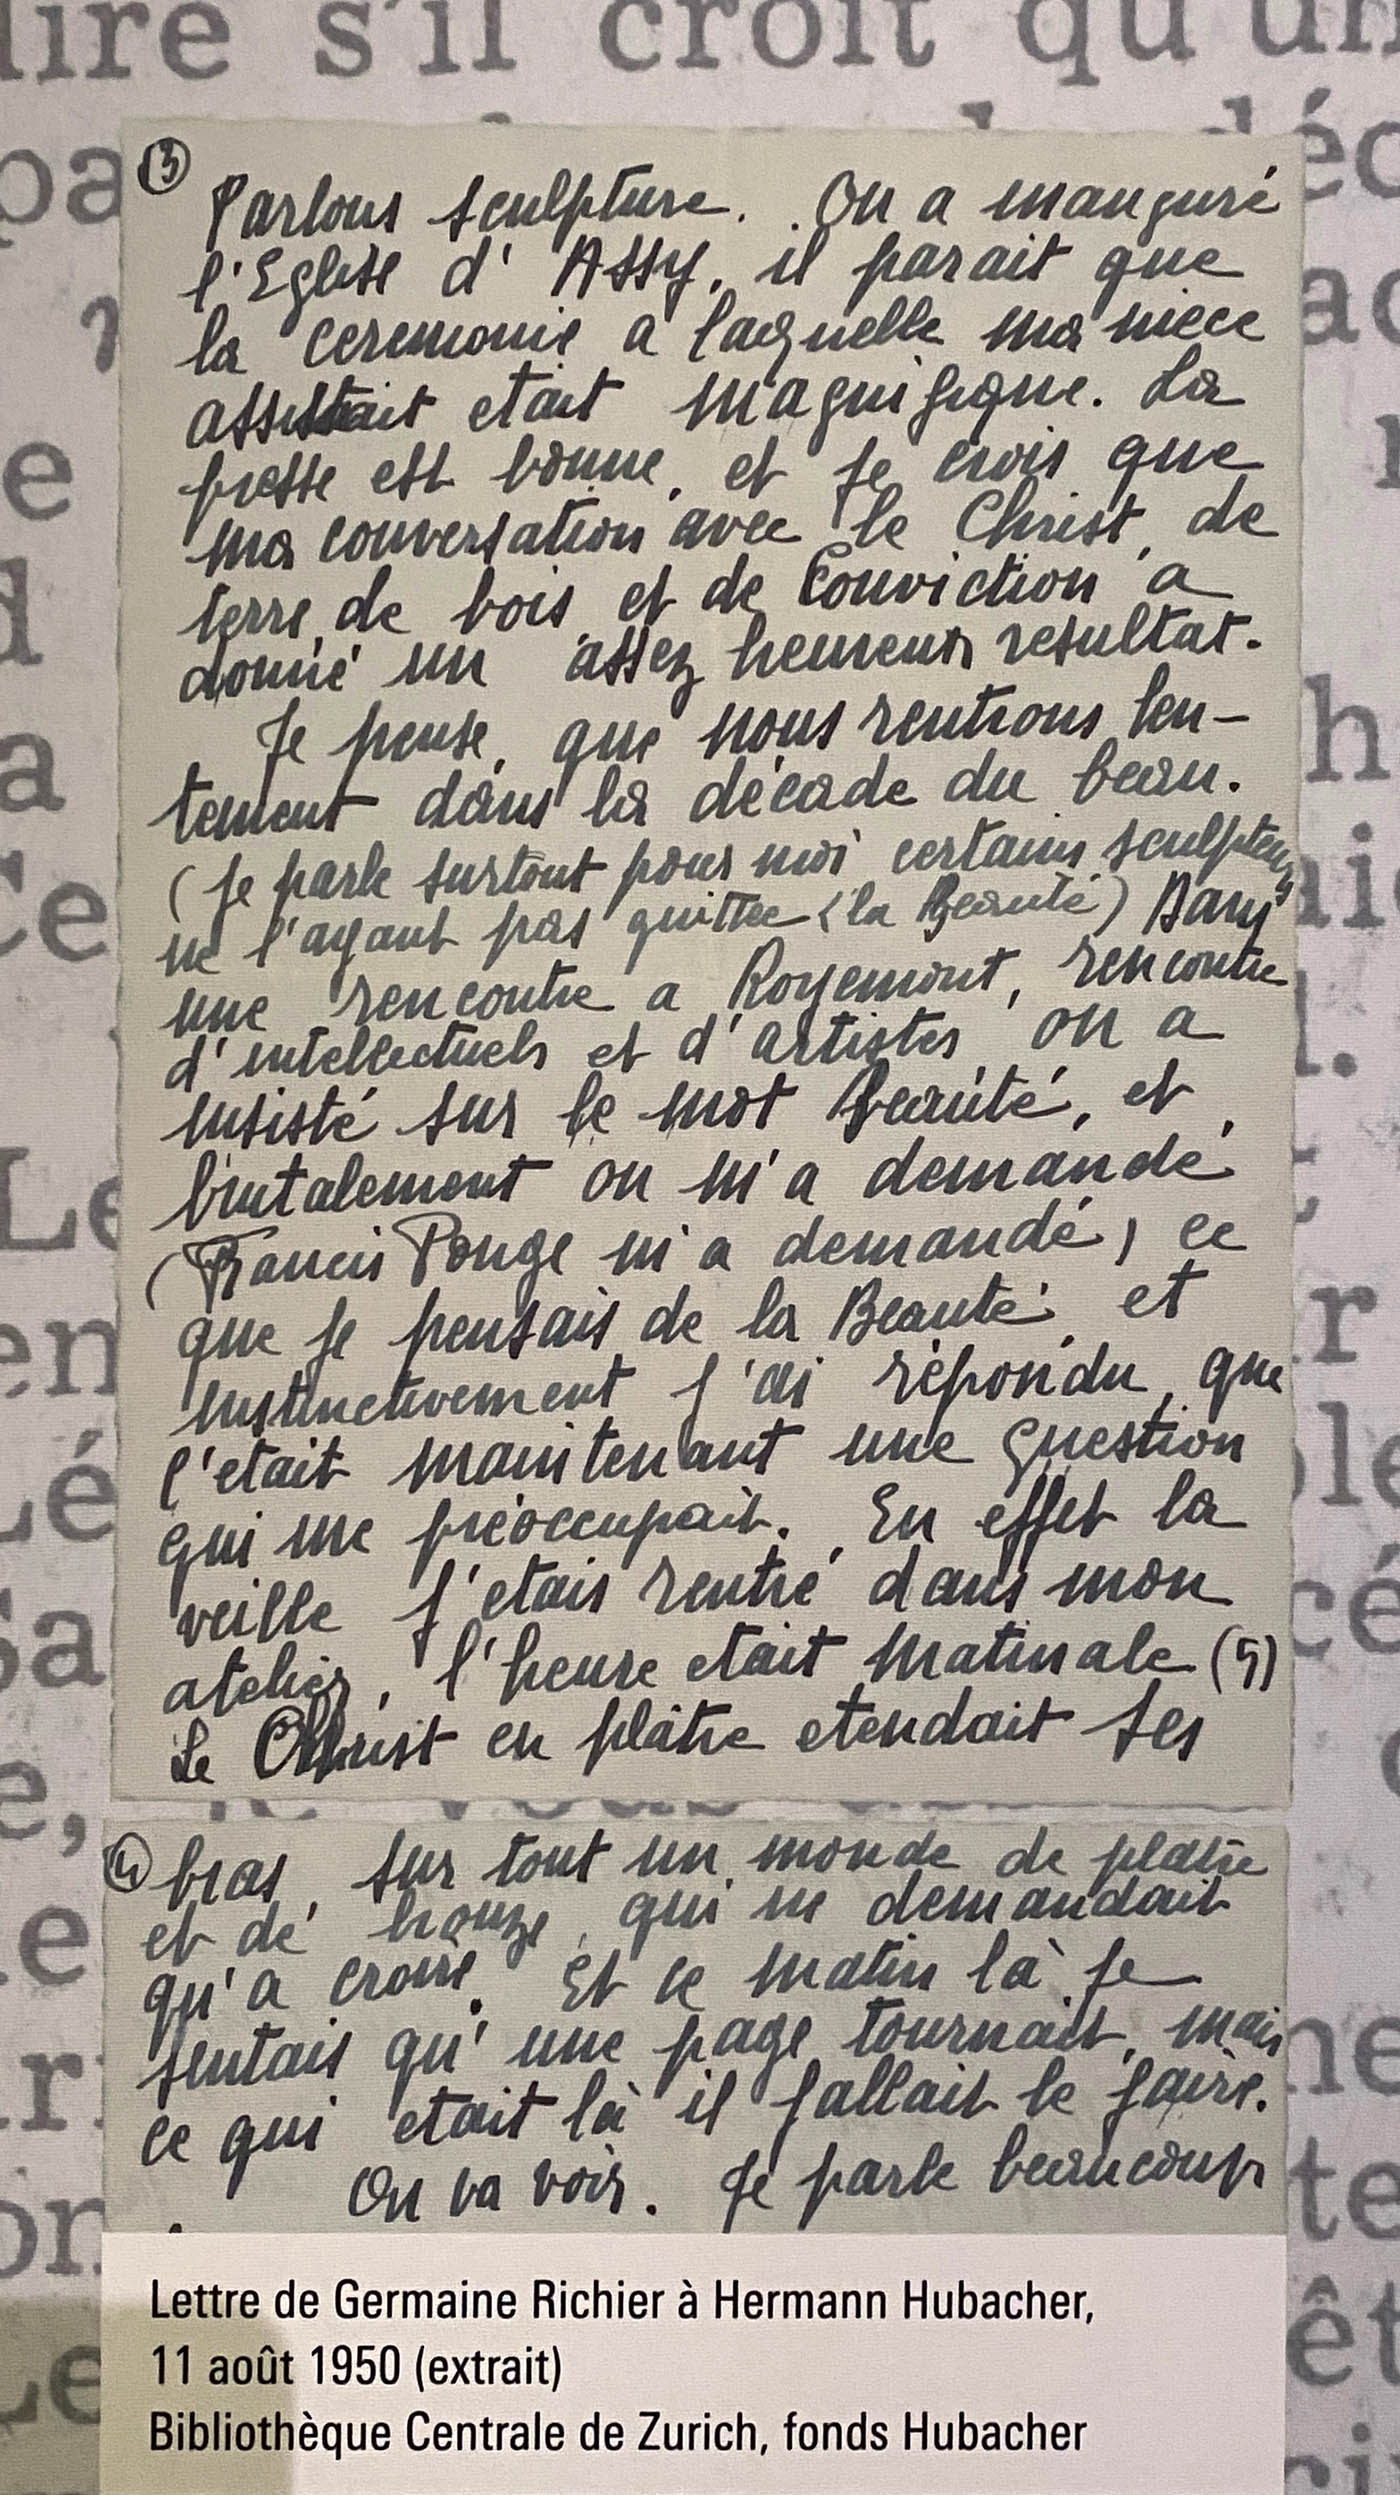 dire s'il croit qu'un
③
Parlons sculpture. On a inauguré
l'Eglise d'Assy, il parait que
la ceremonie a laquelle ma niece
assistait etait magnifique. La
presse est bonne, et je crois que
ma conversation avec le Christ, de
terre, de bois, et de Conviction a
donné un assez heureux resultat.
Je pense, que nous rentrons len-
tement dans la décade du beau.
(je parle surtout pour moi certains sculpteurs
ne l'ayant pas quittée (la Beauté) Dans
une rencontre a Royemont, rencontre
d'intellectuels et d'artistes on a
insisté sur le mot Beauté, et,
brutalement on m'a demandé
(Francis Ponge m'a demandé) ce
que je pensais de la Beauté, et
instinctivement j'ai répondu, que
c'etait maintenant une question
qui me préoccupait. En effet la
veille j'etais rentré dans mon
atelier, l'heure etait matinale (5)
Le Christ en plâtre etendait ses
④ bras, sur tout un monde de platre
et de bronze, qui ne demandait
qu'a croire. Et ce matin là je
sentais qu'une page tournait, mais
ce qui etait là il fallait le faire.
On va voir. Je parle beaucoup
Lettre de Germaine Richier à Hermann Hubacher,
11 août 1950 (extrait)
Bibliothèque Centrale de Zurich, fonds Hubacher